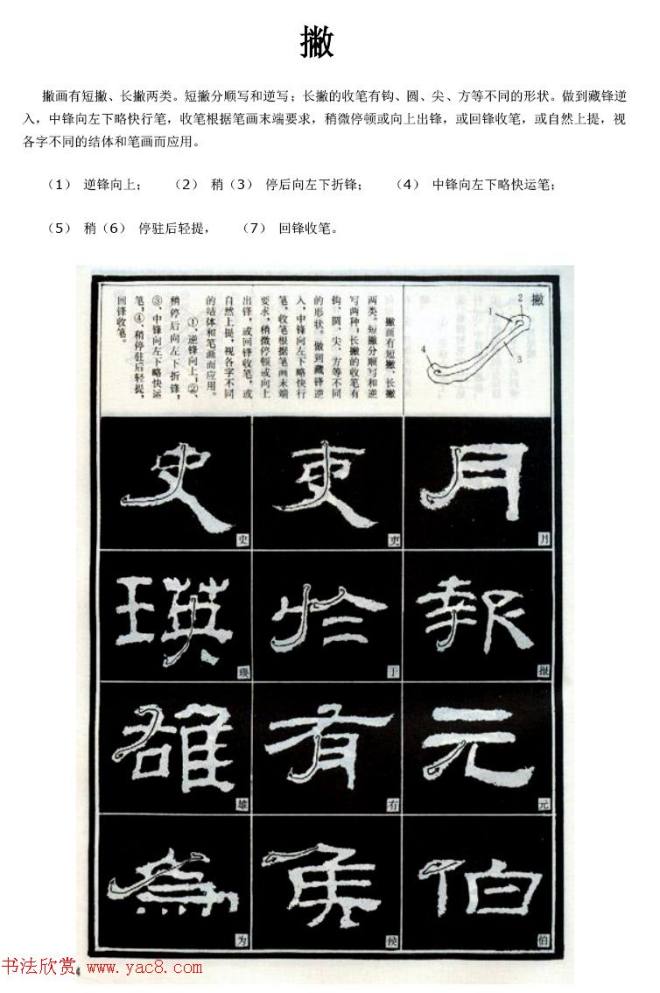 撇
撇画有短撇、长撇两类。短撇分顺写和逆写；长撇的收笔有钩、圆、尖、方等不同的形状。做到藏锋逆
入，中锋向左下略快行笔，收笔根据笔画末端要求，稍微停顿或向上出锋，或回锋收笔，或自然上提，视
各字不同的结体和笔画而应用。
（1） 逆锋向上； （2） 稍（3） 停后向左下折锋； （4） 中锋向左下略快运笔；
（5） 稍（6） 停驻后轻提， （7） 回锋收笔。
撇
1
2
3
4
撇画有短撇、长撇
两类。短撇分顺写和逆
写两种；长撇的收笔有
钩、圆、尖、方等不同
的形状。做到藏锋逆
入，中锋向左下略快行
笔，收笔根据笔画末端
要求，稍微停顿或向上
出锋，或回锋收笔，或
自然上提，视各字不同
的结体和笔画而应用。
①、逆锋向上；②、
稍停后向左下折锋；
③、中锋向左下略快运
笔；④、稍停驻后轻提，
回锋收笔。
月 月
吏 吏
史 史
報 报
於 于
瑛 瑛
元 元
有 有
雄 雄
伯 伯
侯 侯
為 为
4
书法欣赏 www.yac8.com